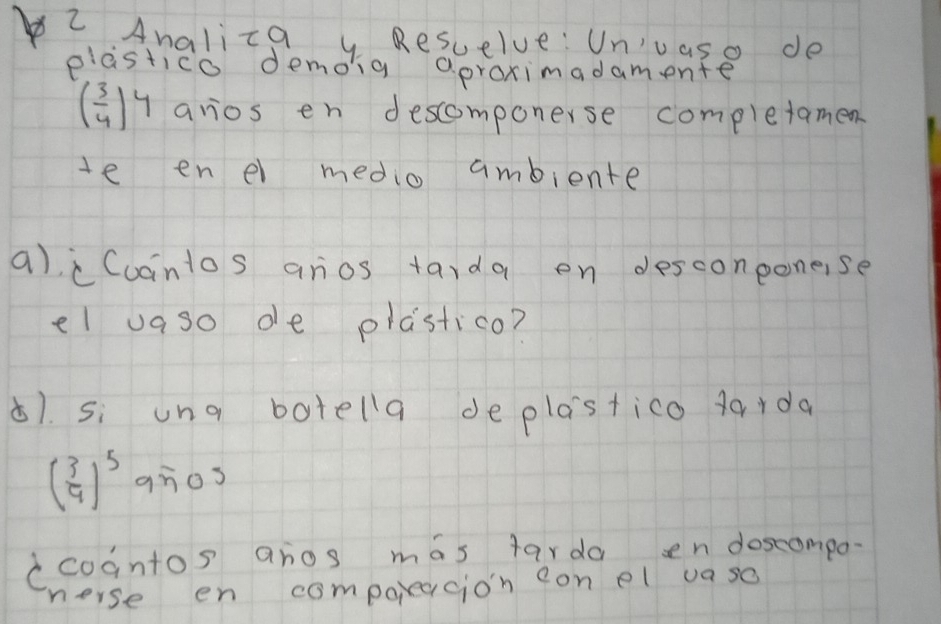 2 Analiza y Resuelve: Un vaso de
plástico demora aproximadamente
(3/4)4 años en descomponerse completamen
te en el medio ambiente
a). ¿Cuántos años tarda en desconponerse
el vaso de plástico?
b). Si una botella de plástico tarda
(3/4)^5 años
¿cuántos años más tarda en descompo-
nerse en comparación con el vaso